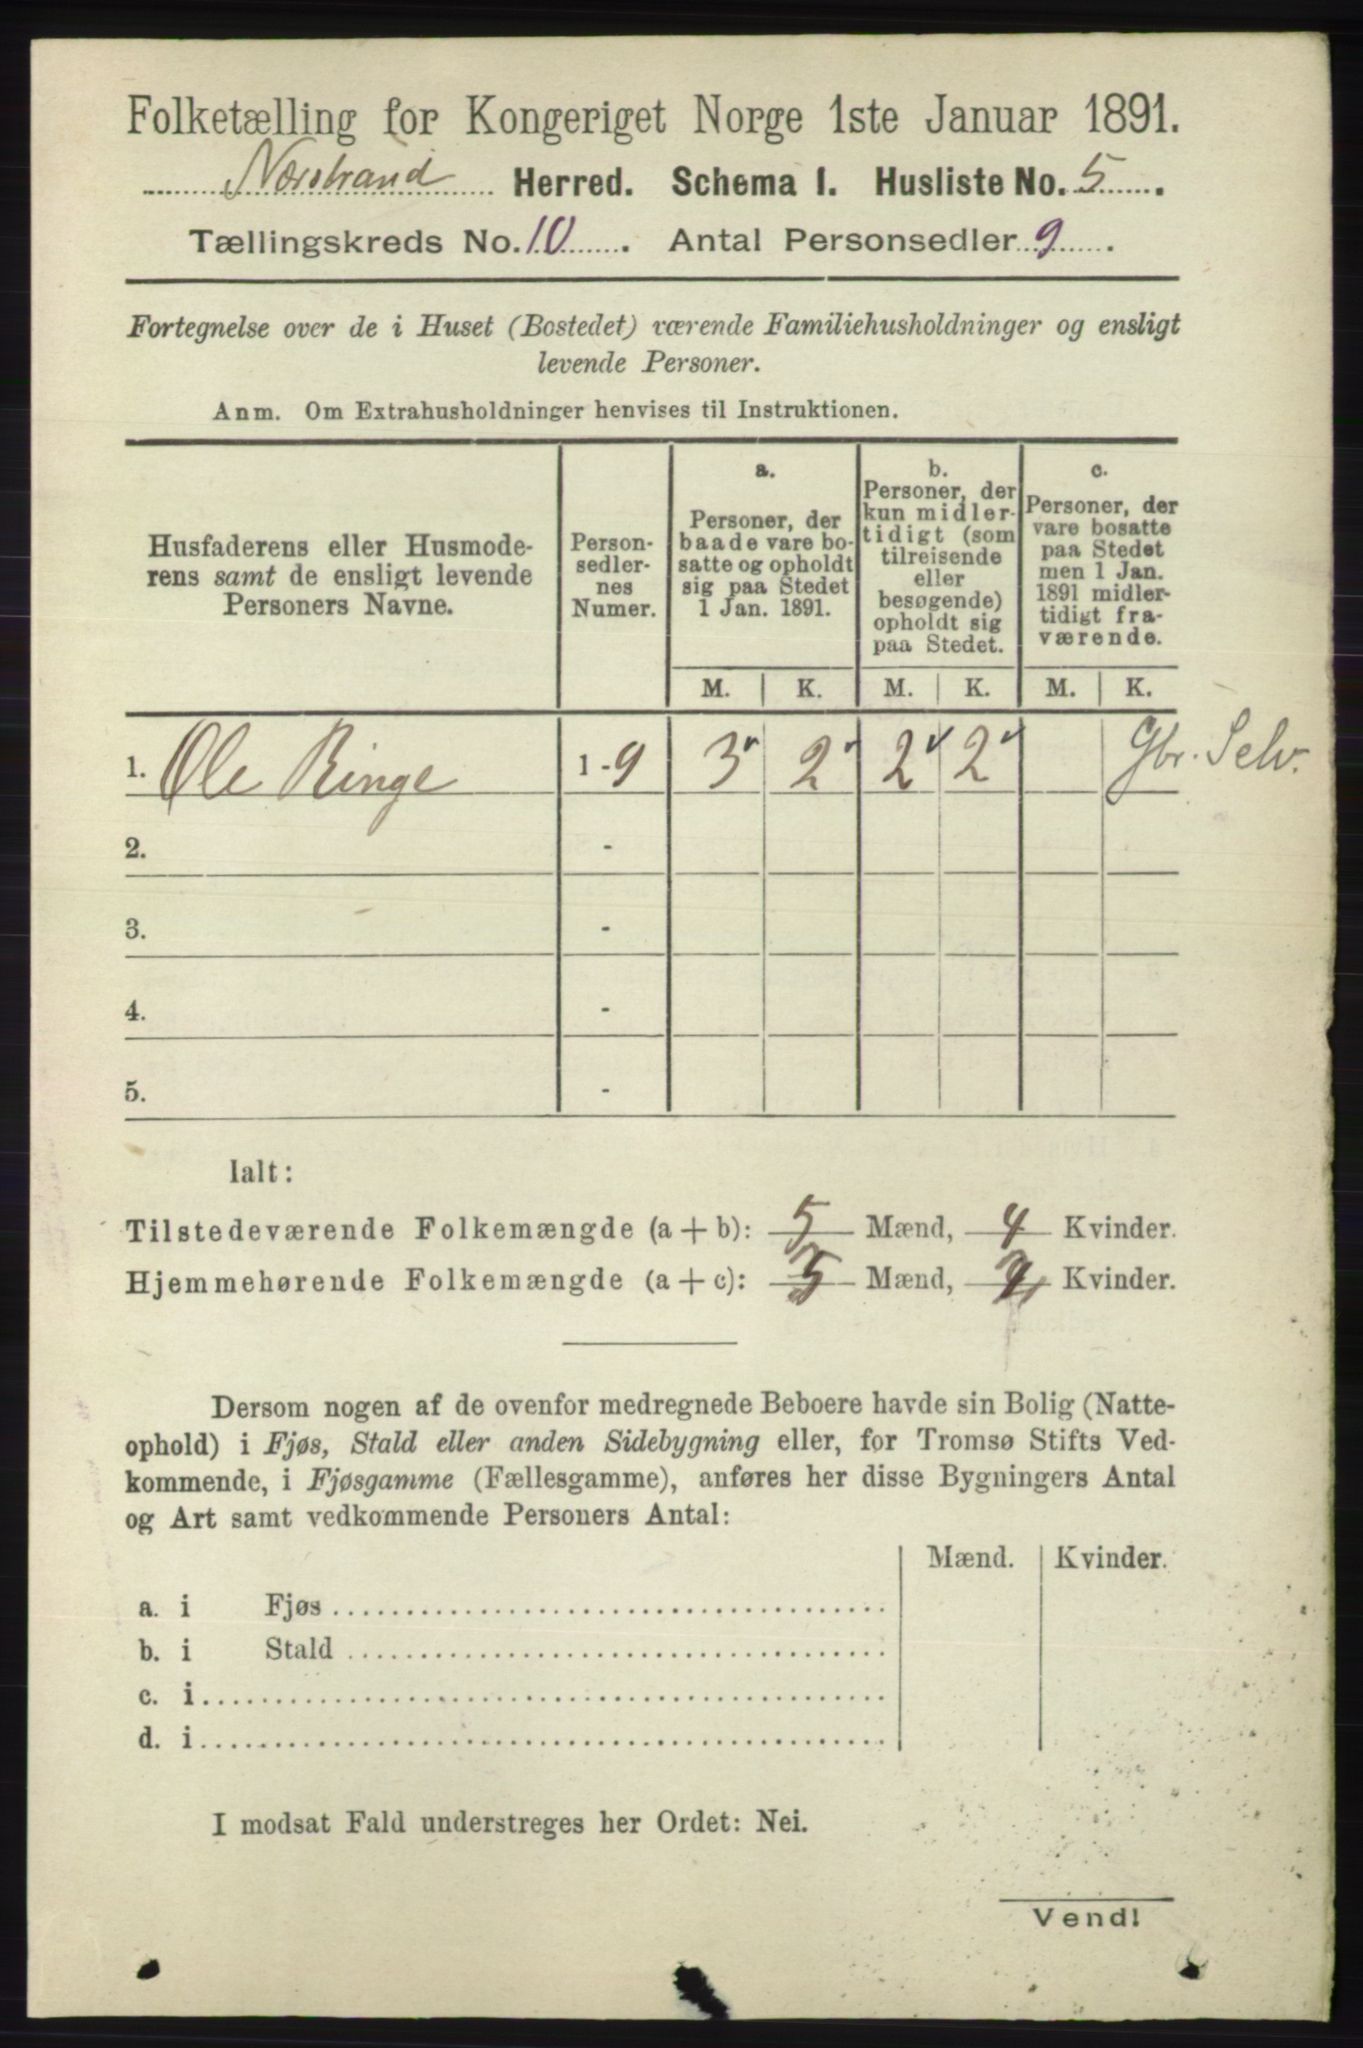 Folketælling for Kongeriget Norge 1ste Januar 1891.
Nærstrand Herred. Schema I. Husliste No. 5.
Tællingskreds No. 10. Antal Personsedler 9.
Fortegnelse over de i Huset (Bostedet) værende Familiehusholdninger og ensligt
levende Personer.
Anm. Om Extrahusholdninger henvises til Instruktionen.
Husfaderens eller Husmode-
rens samt de ensligt levende
Personers Navne.
Person-
sedler-
nes
Numer.
a.
Personer, der
baade vare bo-
satte og opholdt
sig paa Stedet
1 Jan. 1891.
b.
Personer, der
kun midler-
tidigt (som
tilreisende
eller
besøgende)
opholdt sig
paa Stedet.
c.
Personer, der
vare bosatte
paa Stedet
men 1 Jan.
1891 midler-
tidigt fra-
værende.
M. K. M. K. M. K.
1. Ole Ringe 1-9 3 2 2 2 Gbr. Selv.
2. -
3. -
4. -
5. -
Ialt:
Tilstedeværende Folkemængde (a + b): 5 Mænd, 4 Kvinder.
Hjemmehørende Folkemængde (a + c): Mænd, Kvinder.
Dersom nogen af de ovenfor medregnede Beboere havde sin Bolig (Natte-
ophold) i Fjøs, Stald eller anden Sidebygning eller, for Tromsø Stifts Ved-
kommende, i Fjøsgamme (Fællesgamme), anføres her disse Bygningers Antal
og Art samt vedkommende Personers Antal:
Mænd. Kvinder.
a. i Fjøs
b. i Stald
c. i
d. i
I modsat Fald understreges her Ordet: Nei.
Vend!